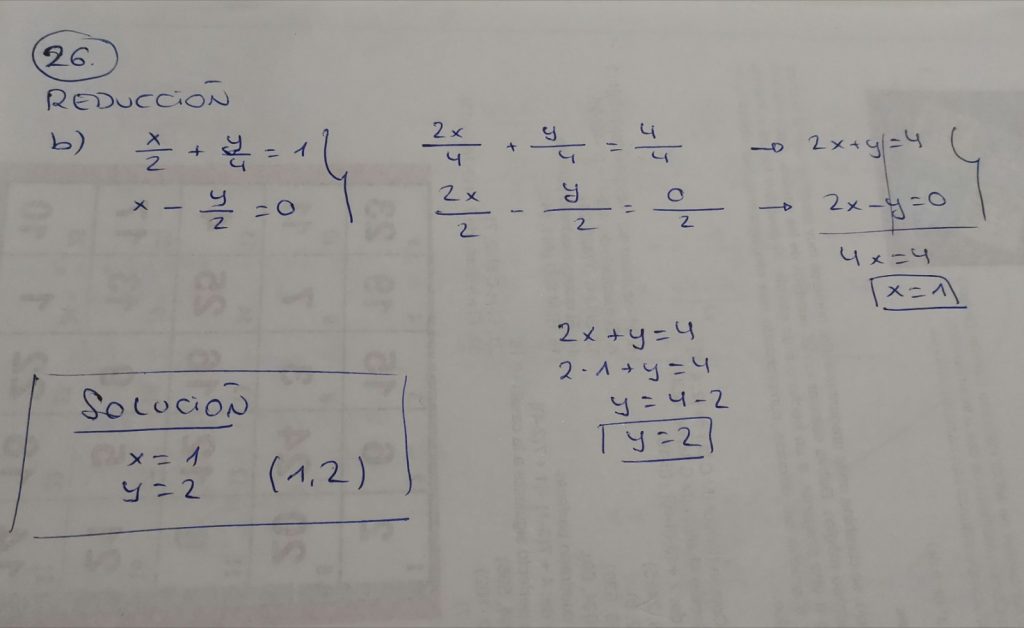 26.
REDUCCIOÑ
b) x/2 + y/4 = 1 2x/4 + y/4 = 4/4 → 2x+y=4
x - y/2 = 0 2x/2 - y/2 = 0/2 → 2x-y=0
4x=4
x=1
2x+y=4
2·1+y=4
y=4-2
y=2
SOLUCIOÑ
x=1
y=2 (1,2)